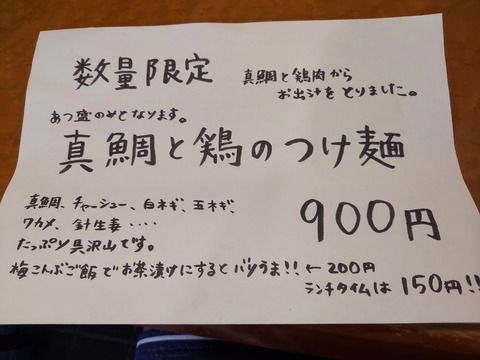 数量限定
真鯛と鶏肉から
お出汁をとりました。
あつ盛のみとなります。
真鯛と鶏のつけ麺
真鯛、チャーシュー、白ネギ、玉ネギ、
ワカメ、針生姜・・・・
たっぷり具沢山です。
900円
梅こんぶご飯でお茶漬けにするとバツうま!! ←200円
ランチタイムは150円!!